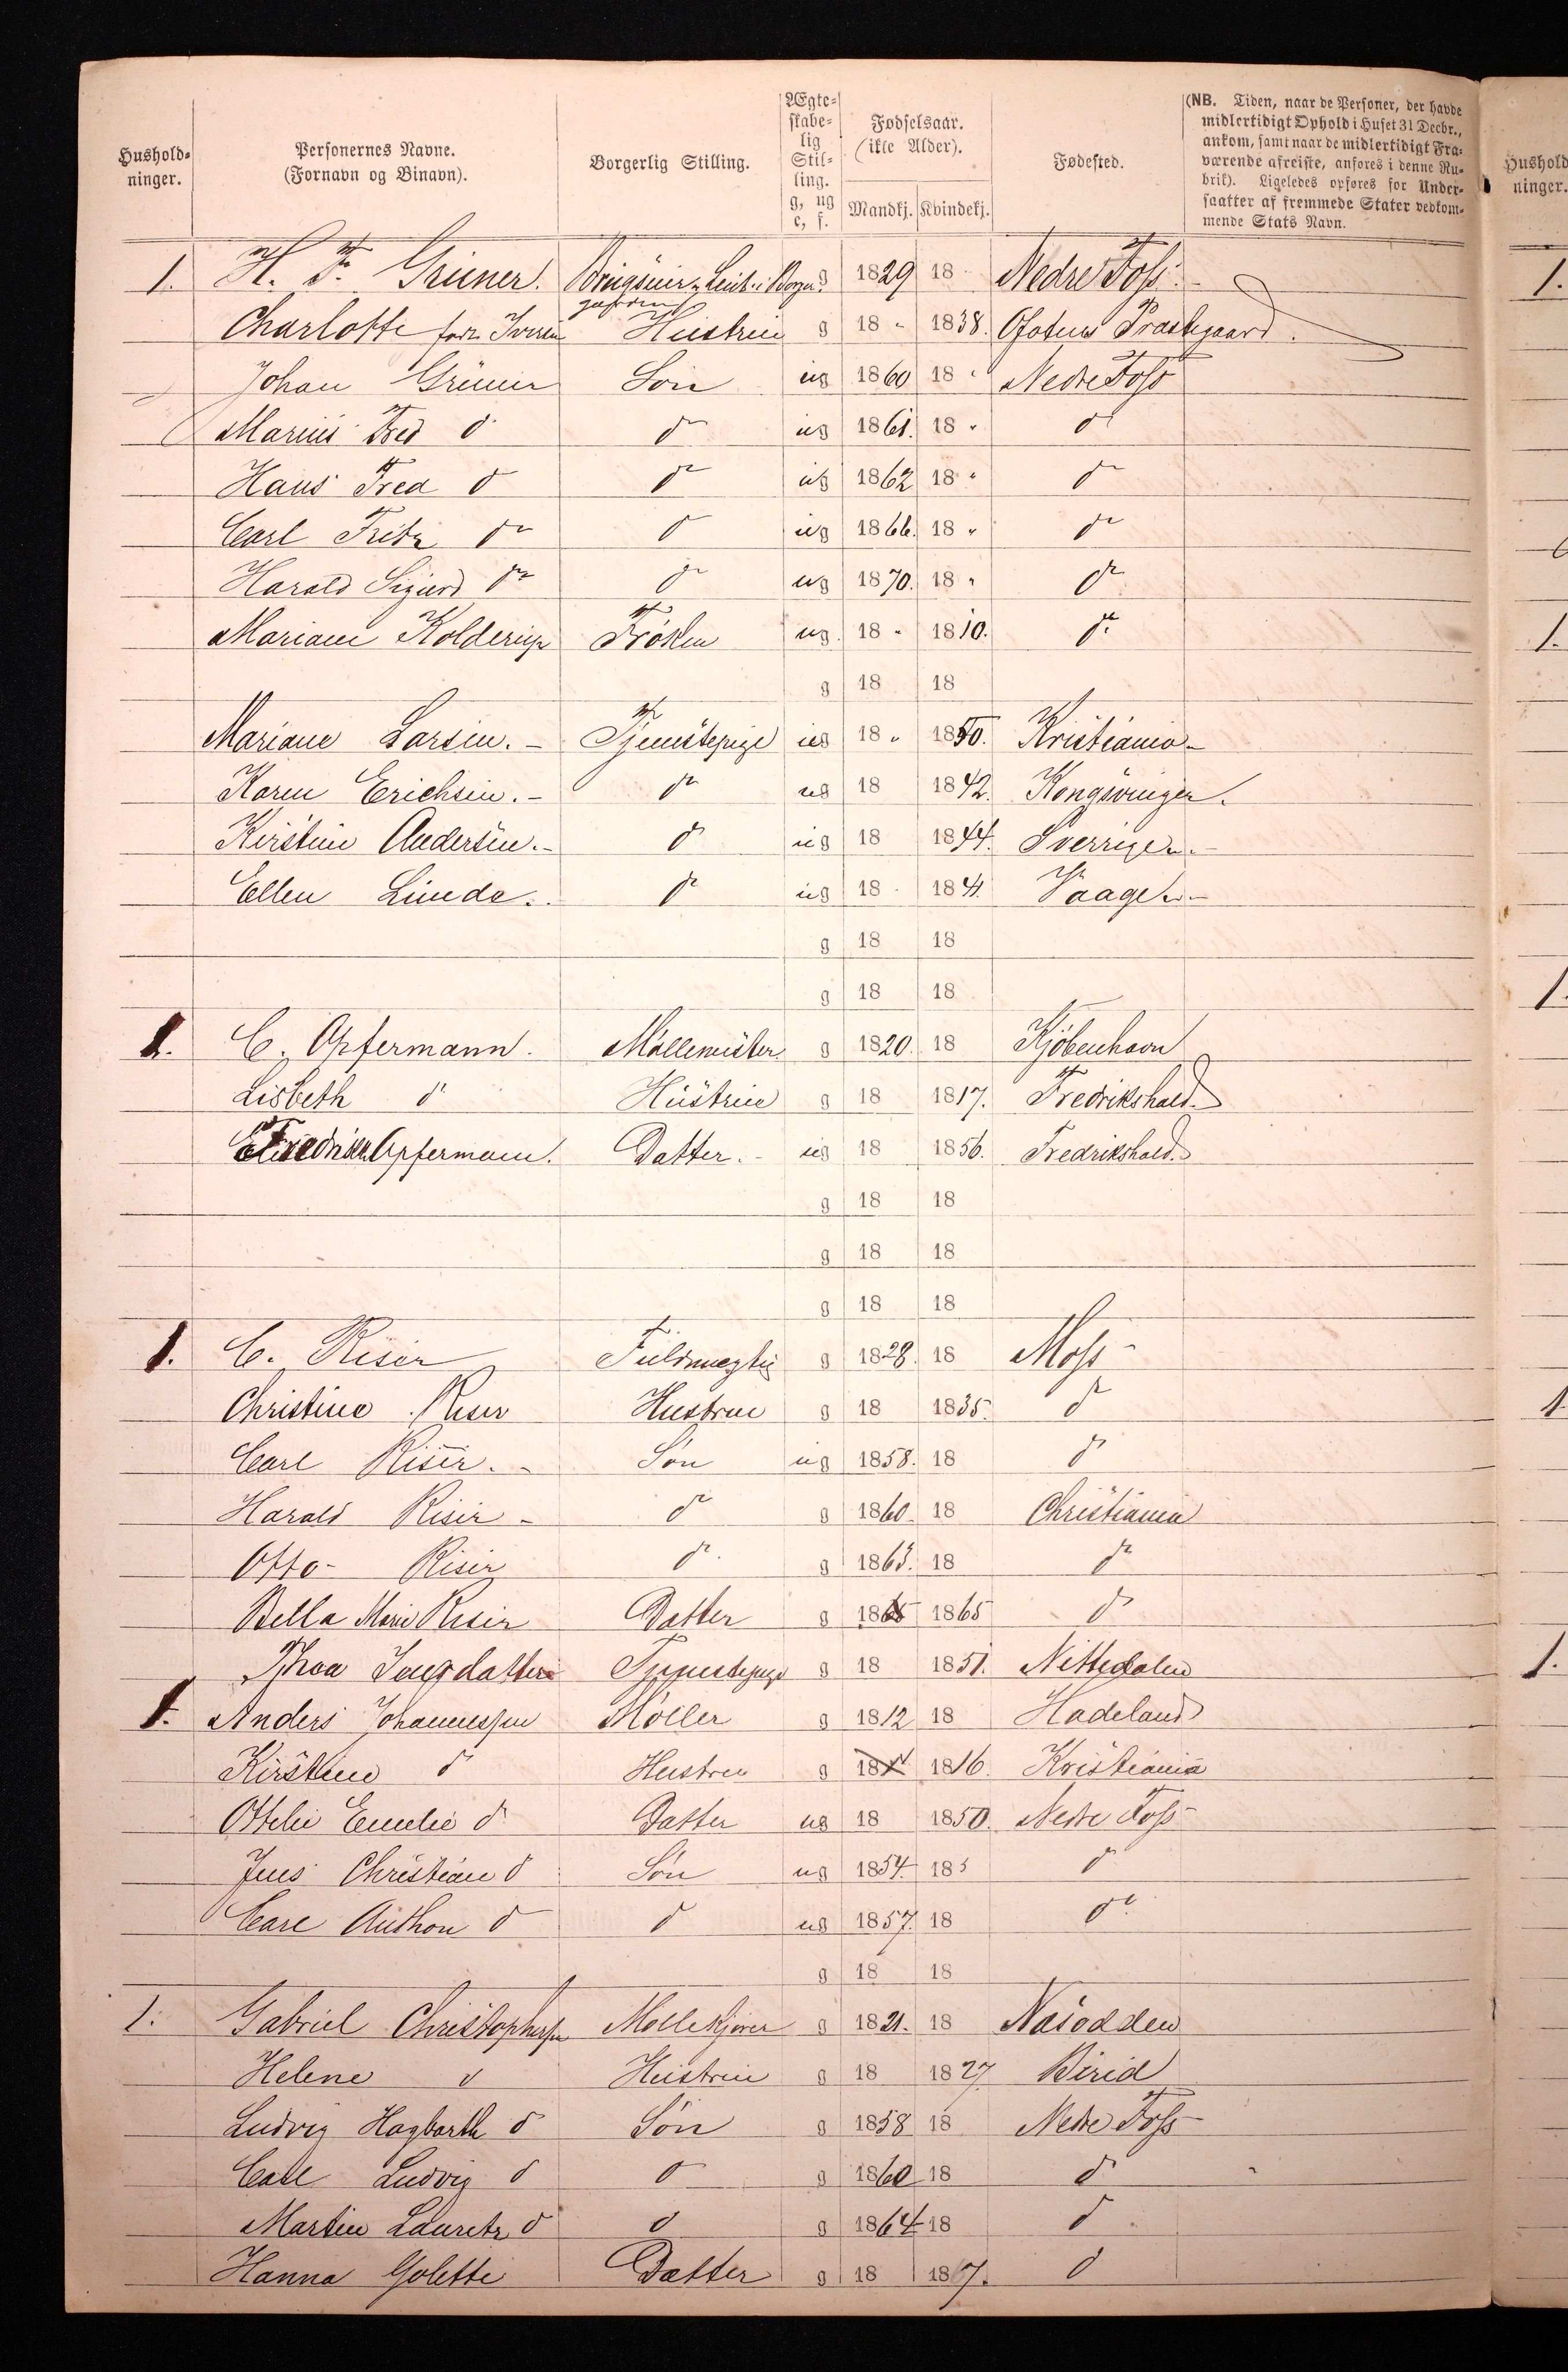 Hushold-
ninger.
Personernes Navne.
(Fornavn og Binavn).
Borgerlig Stilling.
Ægte-
skabe-
lig
Stil-
ling.
g, ug
e, f.
Fødselsaar.
(ikke Alder).
Mandkj. Kvindekj.
Fødested.
(NB. Tiden, naar de Personer, der havde
midlertidigt Ophold i Huset 31 Decbr.,
ankom, samt naar de midlertidigt Fra-
værende afreiste, anføres i denne Ru-
brik). Ligeledes opføres for Under-
saatter af fremmede Stater vedkom-
mende Stats Navn.
Hushold
ninger.
1. H. F. Grüner. g 1829 18 Nedre Foss
Charlotte født Iversen Hustrue g 18 " 1838. Ofotens Præstegaard.
Johan Grüner Søn ug 1860 18 " Nedre Foss
Marius Fred do do ug 1861. 18 " do
Hans Fred do do ug 1862 18 " do
Carl Fritz do do ug 1866. 18 " do
Harald Sigurd do do ug 1870. 18 " do
Mariane Kolderup Frøken ug. 18 " 1810. do
g 18 18
Mariane Larsen. - Tjenestepige ug 18 " 1850. Kristiania -
Karen Erichsen. - do ug 18 1842. Kongsvinger.
Kirstine Andersen. - do ug 18 1844. Sverrige. -
Ellen Lunde. do ug 18 184 Vaage. -
g 18 18
g 18 18
1. C. Opfermann. Møllemester g 1820. 18 Kjøbenhavn
Lisbeth do Hustrue g 18 1817. Fredrikshald
Opfermann. Datter. - ug 18 1856. Fredrikshald.
g 18 18
g 18 18
g 18 18
1. C. Riser Fuldmægtig g 1828. 18 Moss -
Christine Riser Hustrue g 18 1835. do
Carl Riser. - Søn ug 1858. 18 do
Harald Riser - do g 1860. 18 Christiania
Otto - Riser do g 1863. 18 do
Bella Marie Riser Datter g 1865 1865 do
Tjenestepige g 18 1851. Nittedalen
1. Anders Johannessen Møller g 1812 18 Hadeland
Kirstine do Hustrue g 18 1816. Kristiania
Ottilie Emilie do Datter ug 18 1850. Nedre Foss
Jens Christian do Søn ug 1854. 18 do
Carl Anthon do do ug 1857. 18 do
g 18 18
1. Gabriel Christophersen Møllekjører g 1821. 18 Næsodden
Helene do Hustrue g 18 1827 Birid
Ludvig Hagbarth do Søn g 1858 18 Nedre Foss
Carl Ludvig do do g 1860 18 do
Martin Lauretz do do g 1864 18 do
Hanna Golette Datter g 18 1867. do
1.
1.
1.
1
1.